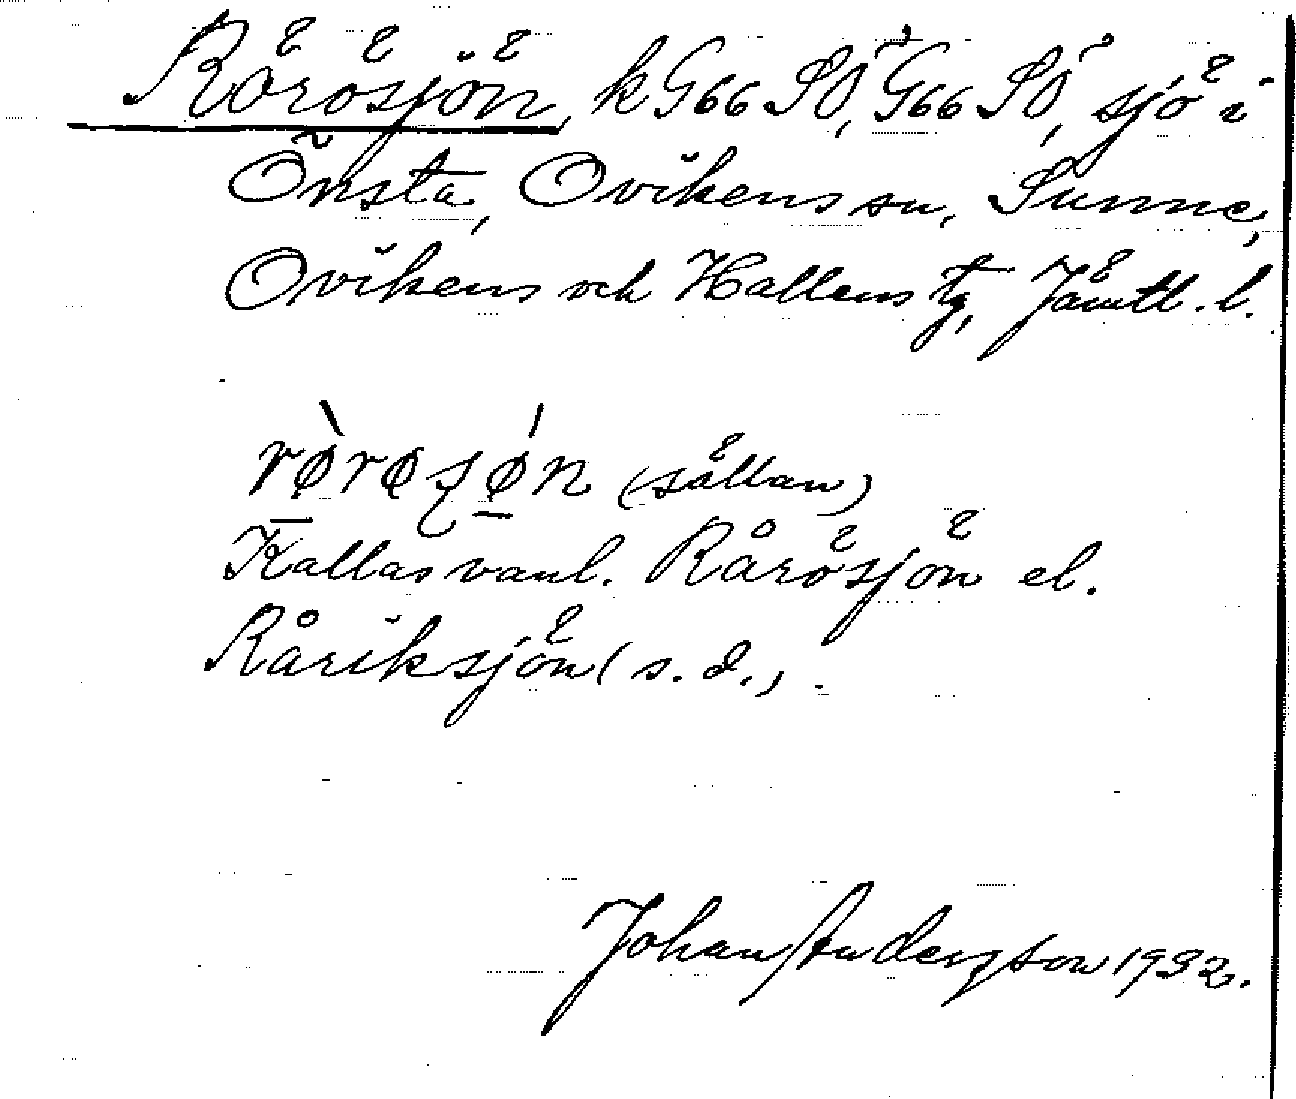 Rörösjön, k G66 SÖ, G66 SÖ, sjö i
Önsta, Ovikens sn, Sunne,
Ovikens och Hallens tg, Jämtl. l.
rø̀røsǿn (sällan)
Kallas vanl. Rårösjön el.
Råriksjön (s. d.).
Johan Anderzson 1932.